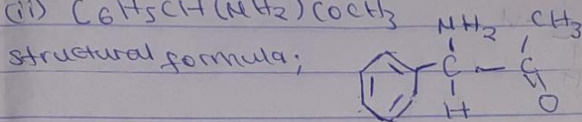 (ii) C6H5CH(NH2)COCH3
structural formula;
NH2 CH3
C - C
H O